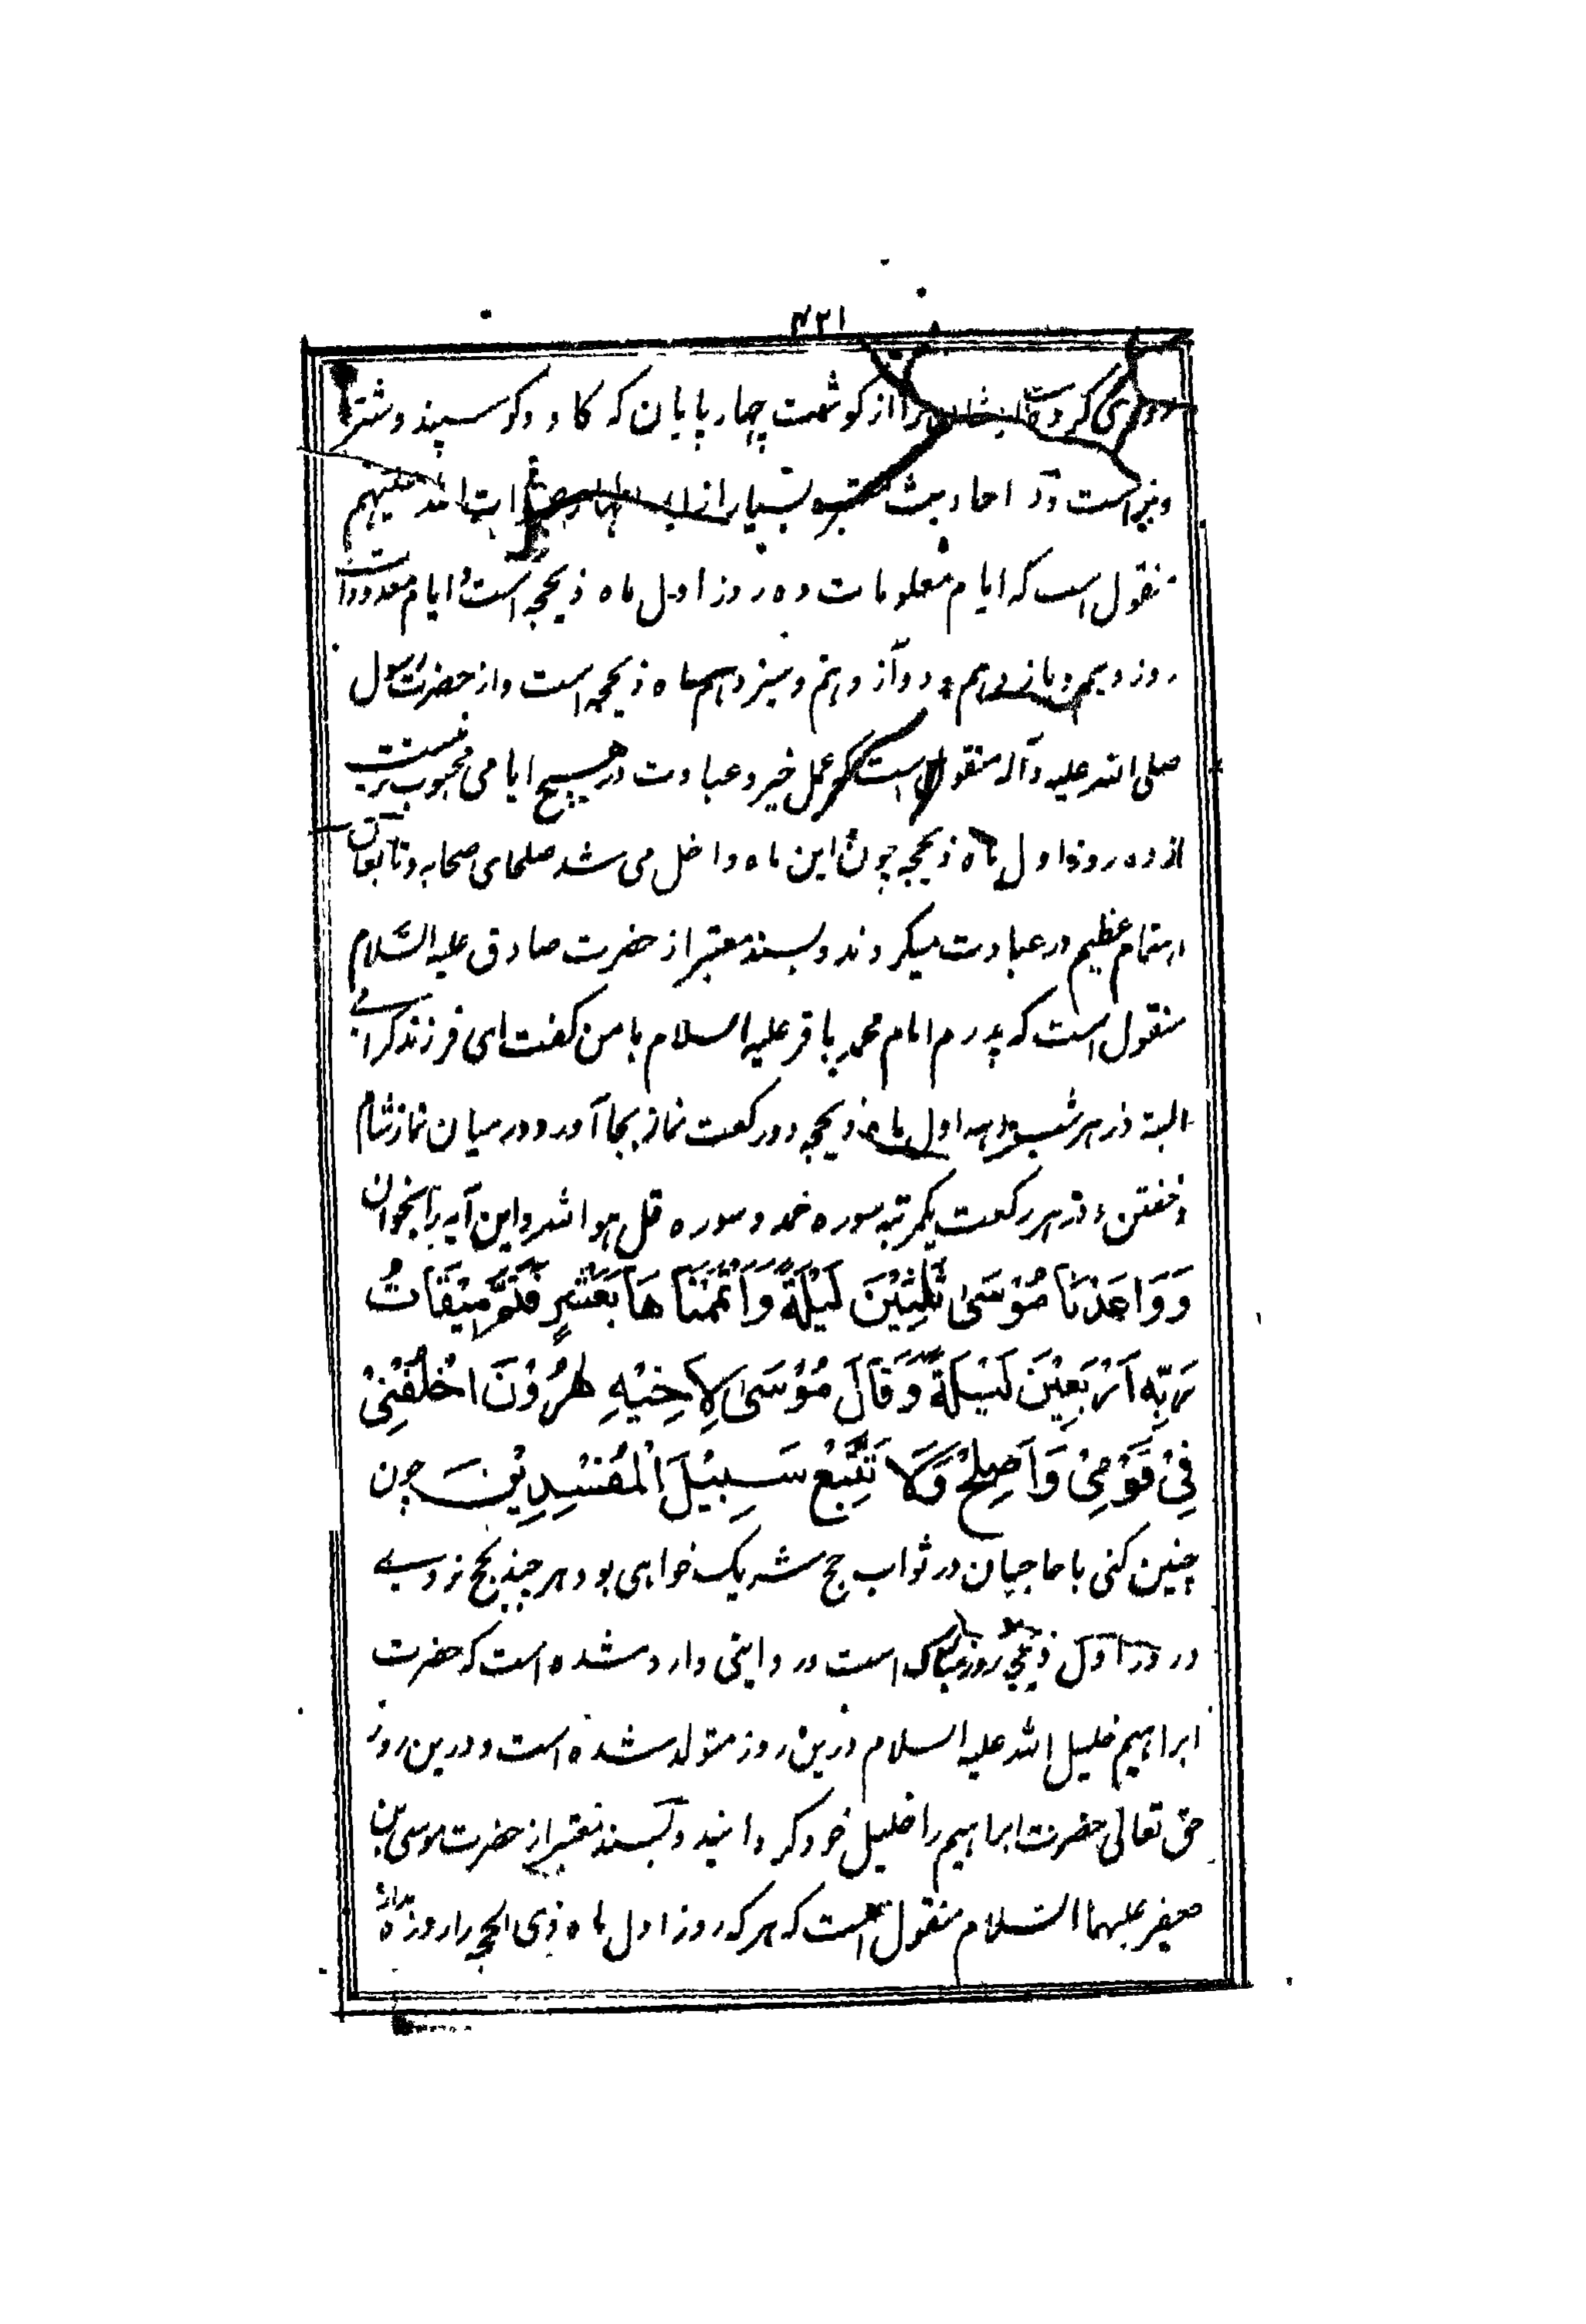 ۴۲۱
روزی کرده است ایشان را از کوشت چهار پایان که کاو و کوسپند و شتر
و بز است و در احادیث معتبره بسیار از ائمه اطهار صلوات الله علیهم
منقول است که ایام معلومات ده روز اول ماه ذیحجه است و ایام معدودات
روز دهم و یازدهم و دوازدهم و سیزدهم ماه ذیحجه است و از حضرت رسول
صلی الله علیه و آله منقول است که عمل خیر و عبادت در هیچ ایامی محبوب تر نیست
از ده روز اول ماه ذیحجه چون این ماه داخل می شد صلحای صحابه و تابعان
اهتمام عظیم در عبادت میکردند و بسند معتبر از حضرت صادق علیه السلام
منقول است که پدرم امام محمد باقر علیه السلام با من کفت ای فرزند کرامی
البته در هر شب دهه اول ماه ذیحجه دو رکعت نماز بجا آور و در میان نماز شام
و خفتن و در هر رکعت یکمرتبه سوره حمد و سوره قل هو الله و این آیه را بخوان
وَوَاعَدْنَا مُوْسَىٰ ثَلٰثِيْنَ لَيْلَةً وَاَتْمَمْنَا هَا بِعَشْرٍ فَتَمَّ مِيْقَاتُ
رَبِّهٖ اَرْبَعِيْنَ لَيْلَةً وَقَالَ مُوْسَىٰ لِاَخِيْهِ هٰرُوْنَ اخْلُفْنِيْ
فِيْ قَوْمِيْ وَاَصْلِحْ وَلَا تَتَّبِعْ سَبِيْلَ الْمُفْسِدِيْنَ چون
چنین کنی با حاجیان در ثواب حج شریک خواهی بود هر چند بحج نروی
در روز اول ذیحجه روز مبارک است و روایتی وارد شده است که حضرت
ابراهیم خلیل الله علیه السلام درین روز متولد شده است و درین روز
حق تعالی حضرت ابراهیم را خلیل خود کردانید و بسند معتبر از حضرت موسی بن
جعفر علیهما السلام منقول است که هر که روز اول ماه ذی الحجه را روزه